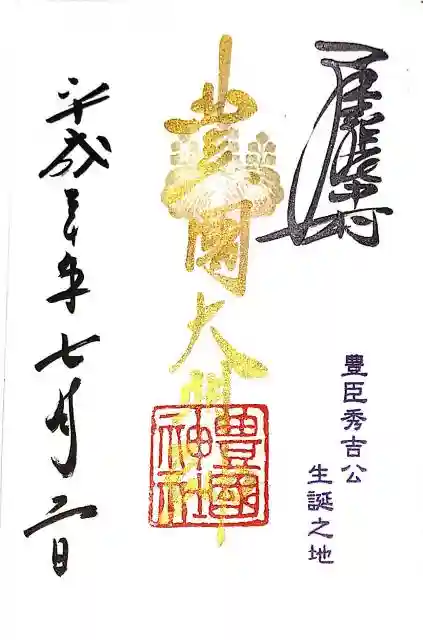 豊臣秀吉公
生誕之地
豊國大明神
豊國神社
平成三十年七月二日